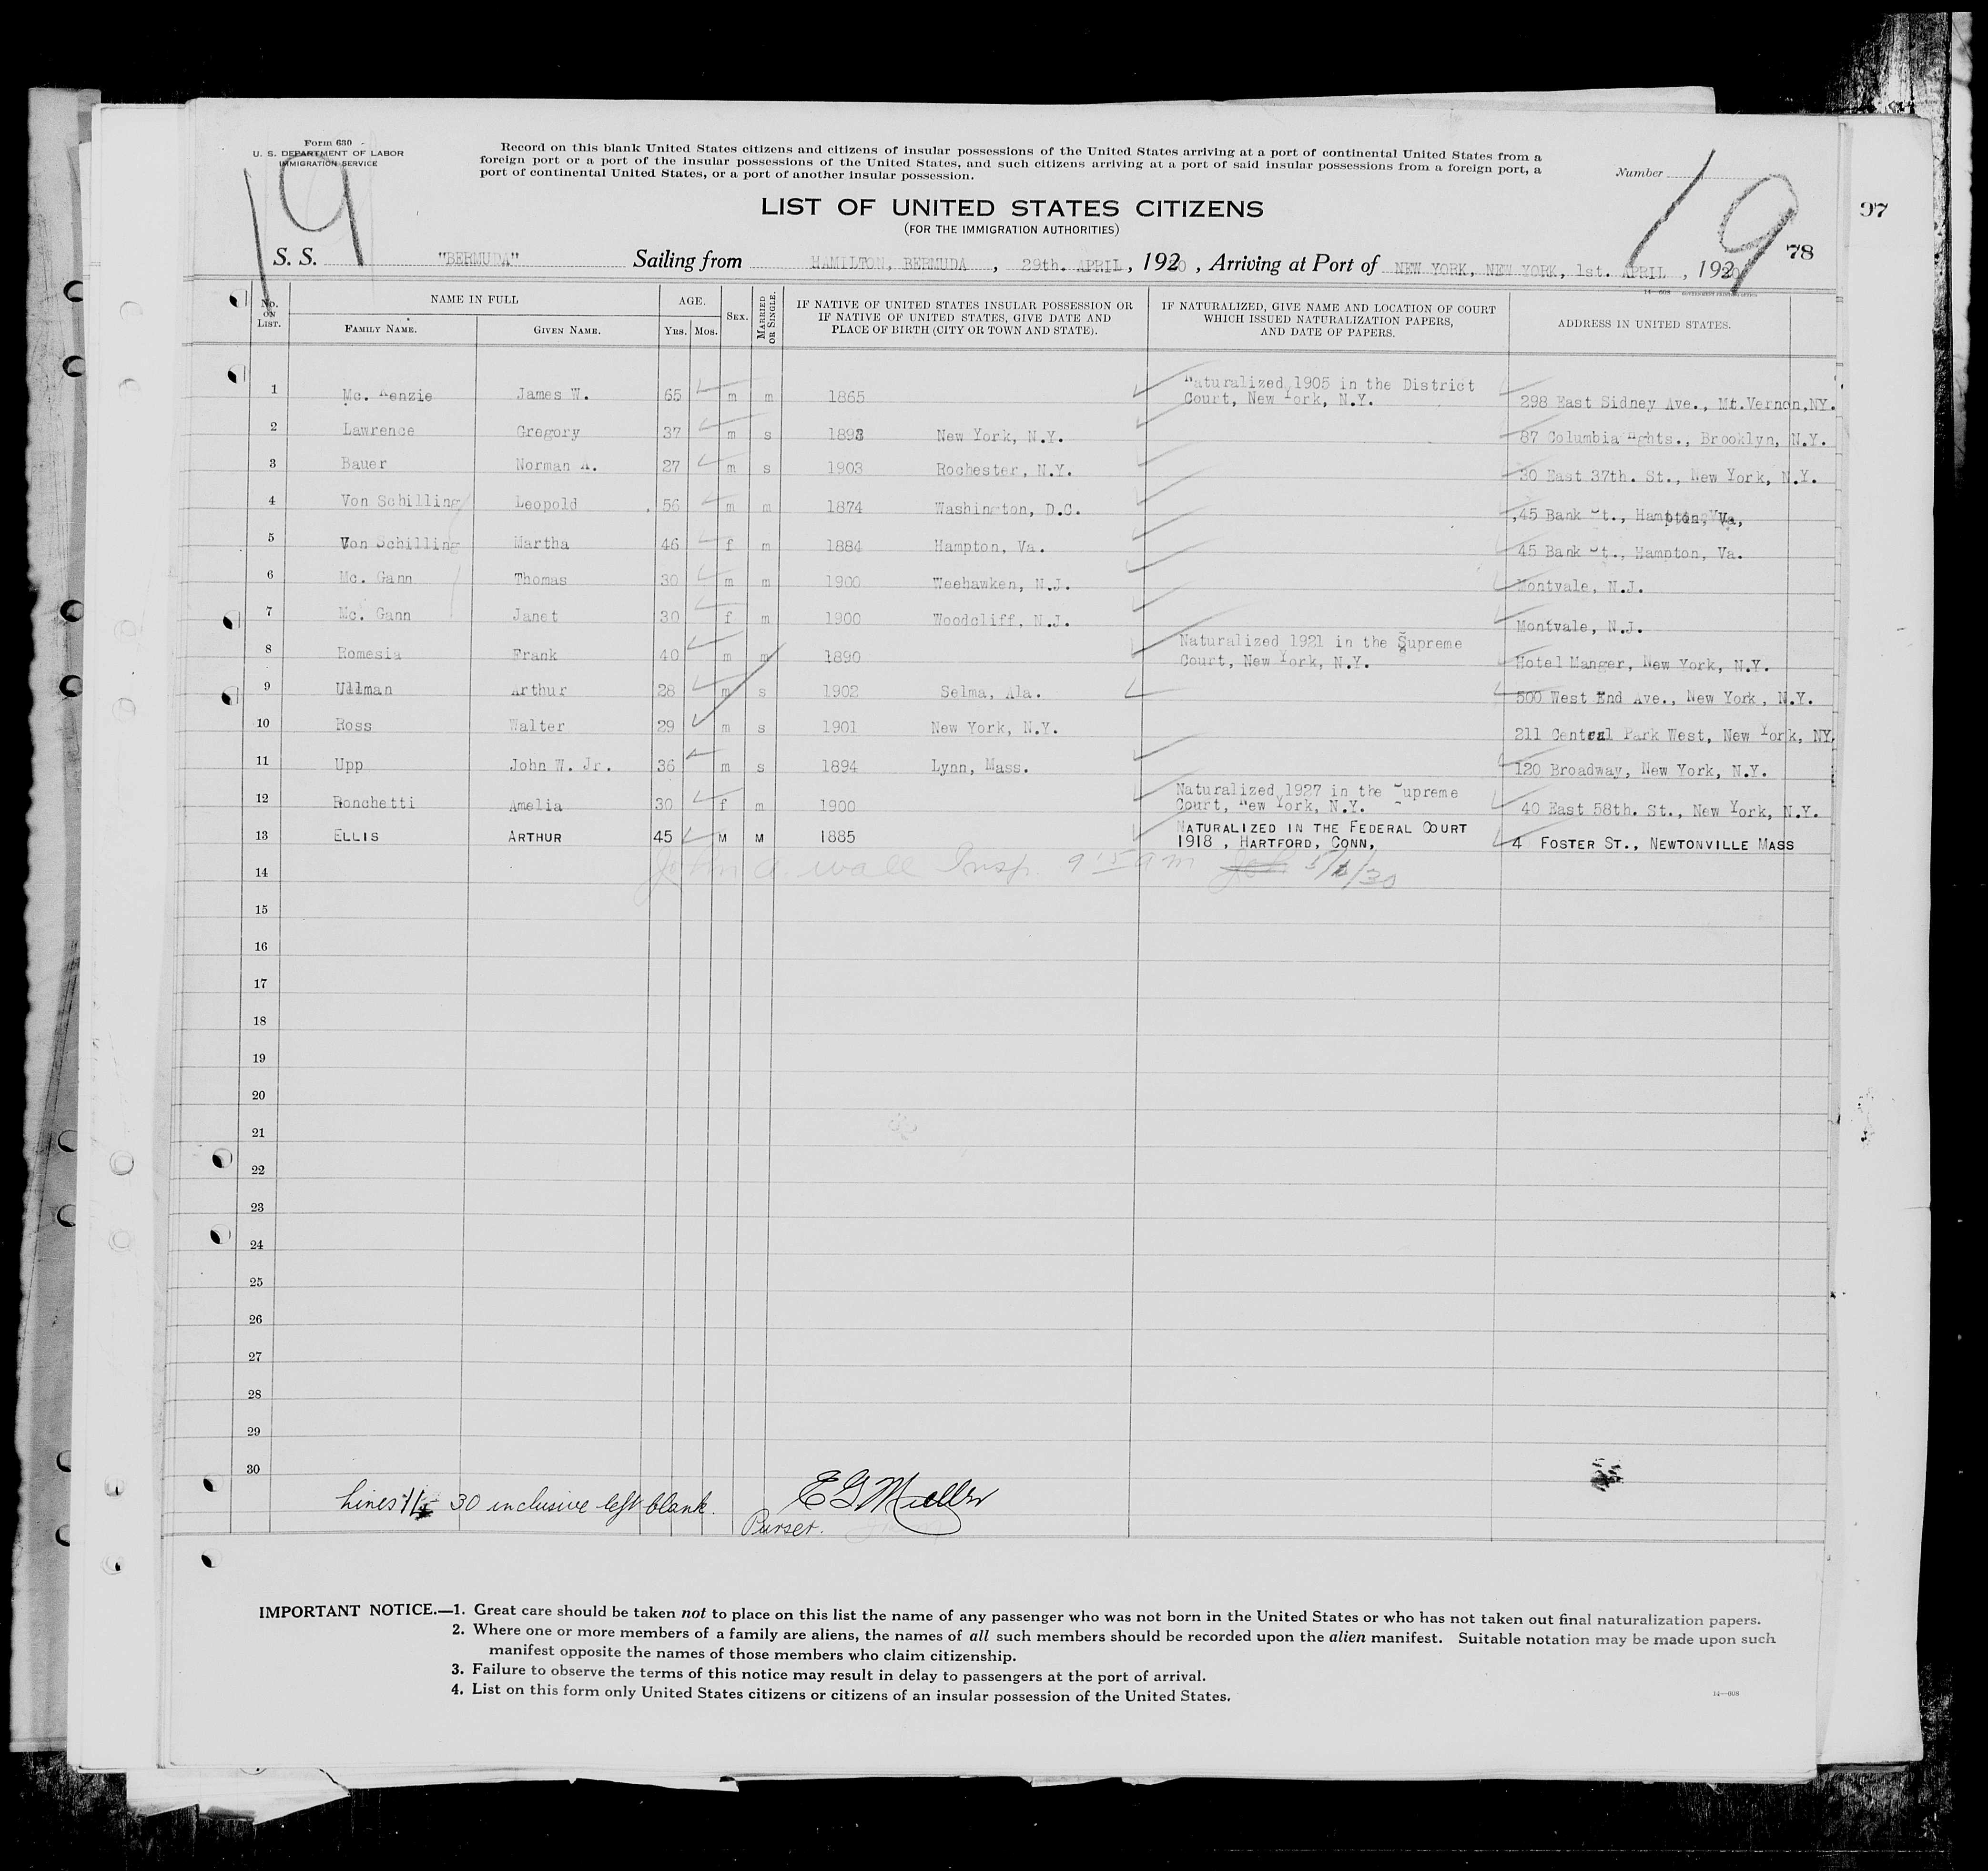 Form 630
U. S. DEPARTMENT OF LABOR
IMMIGRATION SERVICE
Record on this blank United States citizens and citizens of insular possessions of the United States arriving at a port of continental United States from a
foreign port or a port of the insular possessions of the United States, and such citizens arriving at a port of said insular possessions from a foreign port, a
port of continental United States, or a port of another insular possession.
Number
19
19
97
LIST OF UNITED STATES CITIZENS
(FOR THE IMMIGRATION AUTHORITIES)
78
S. S. "BERMUDA" Sailing from HAMILTON, BERMUDA , 29th. APRIL , 1920 , Arriving at Port of NEW YORK, NEW YORK, 1st. APRIL , 192
14—608 GOVERNMENT PRINTING OFFICE
No. ON LIST. NAME IN FULL FAMILY NAME. GIVEN NAME. AGE. YRS. MOS. SEX. MARRIED OR SINGLE. IF NATIVE OF UNITED STATES INSULAR POSSESSION OR IF NATIVE OF UNITED STATES, GIVE DATE AND PLACE OF BIRTH (CITY OR TOWN AND STATE). IF NATURALIZED, GIVE NAME AND LOCATION OF COURT WHICH ISSUED NATURALIZATION PAPERS, AND DATE OF PAPERS. ADDRESS IN UNITED STATES.
1 Mc. Kenzie James W. 65 m m 1865 Naturalized 1905 in the District Court, New York, N.Y. 298 East Sidney Ave., Mt.Vernon,NY.
2 Lawrence Gregory 37 m s 1893 New York, N.Y. 87 Columbia Hghts., Brooklyn, N.Y.
3 Bauer Norman A. 27 m s 1903 Rochester, N.Y. 30 East 37th. St., New York, N.Y.
4 Von Schilling Leopold 56 m m 1874 Washington, D.C. 45 Bank St., Hampton, Va,
5 Von Schilling Martha 46 f m 1884 Hampton, Va. 45 Bank St., Hampton, Va.
6 Mc. Gann Thomas 30 m m 1900 Weehawken, N.J. Montvale, N.J.
7 Mc. Gann Janet 30 f m 1900 Woodcliff, N.J. Montvale, N.J.
8 Romesia Frank 40 m m 1890 Naturalized 1921 in the Supreme Court, New York, N.Y. Hotel Manger, New York, N.Y.
9 Ullman Arthur 28 m s 1902 Selma, Ala. 500 West End Ave., New York, N.Y.
10 Ross Walter 29 m s 1901 New York, N.Y. 211 Central Park West, New York, NY.
11 Upp John W. Jr. 36 m s 1894 Lynn, Mass. 120 Broadway, New York, N.Y.
12 Ronchetti Amelia 30 f m 1900 Naturalized 1927 in the Supreme Court, New York, N.Y. 40 East 58th. St., New York, N.Y.
13 ELLIS ARTHUR 45 M M 1885 NATURALIZED IN THE FEDERAL COURT 1918 , HARTFORD, CONN, 4 FOSTER ST., NEWTONVILLE MASS
John A. Wall Insp. 9 15 am 5/1/30
14
15
16
17
18
19
20
21
22
23
24
25
26
27
28
29
30
Lines 30 inclusive left blank.
E G Muller
Purser.
IMPORTANT NOTICE.—1. Great care should be taken not to place on this list the name of any passenger who was not born in the United States or who has not taken out final naturalization papers.
2. Where one or more members of a family are aliens, the names of all such members should be recorded upon the alien manifest. Suitable notation may be made upon such
manifest opposite the names of those members who claim citizenship.
3. Failure to observe the terms of this notice may result in delay to passengers at the port of arrival.
4. List on this form only United States citizens or citizens of an insular possession of the United States.
14—608